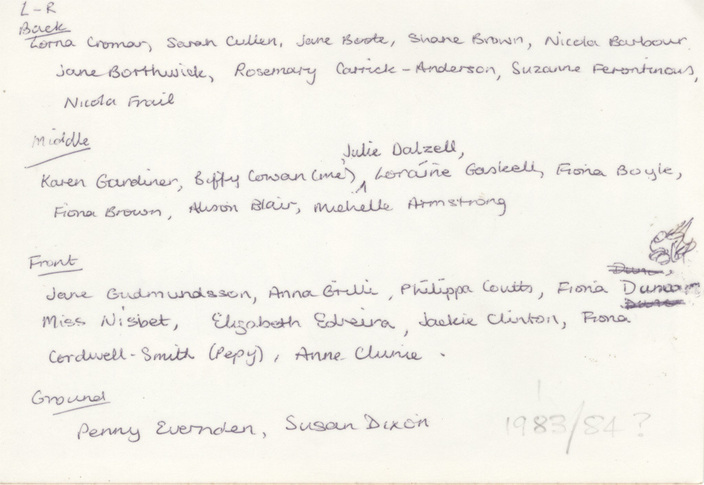 L-R
Back
Lorna Cromar, Sarah Cullen, Jane Beate, Shane Brown, Nicola Barbour
Jane Borthwick, Rosemary Carrick-Anderson, Suzanne Ferentinous,
Nicola Frail
Middle
Julie Dalzell,
Karen Gardiner, Biffy Cowan (me), Lorraine Gaskell, Fiona Boyle,
Fiona Brown, Alison Blair, Michelle Armstrong
Front
Jane Gudmundsson, Anna Grilli, Philippa Coutts, Fiona Duncan
Miss Nisbet, Elizabeth Edreira, Jackie Clinton, Fiona
Cordwell-Smith (Pepy), Anne Clunie.
Ground
Penny Evernden, Susan Dixon
1983/84?